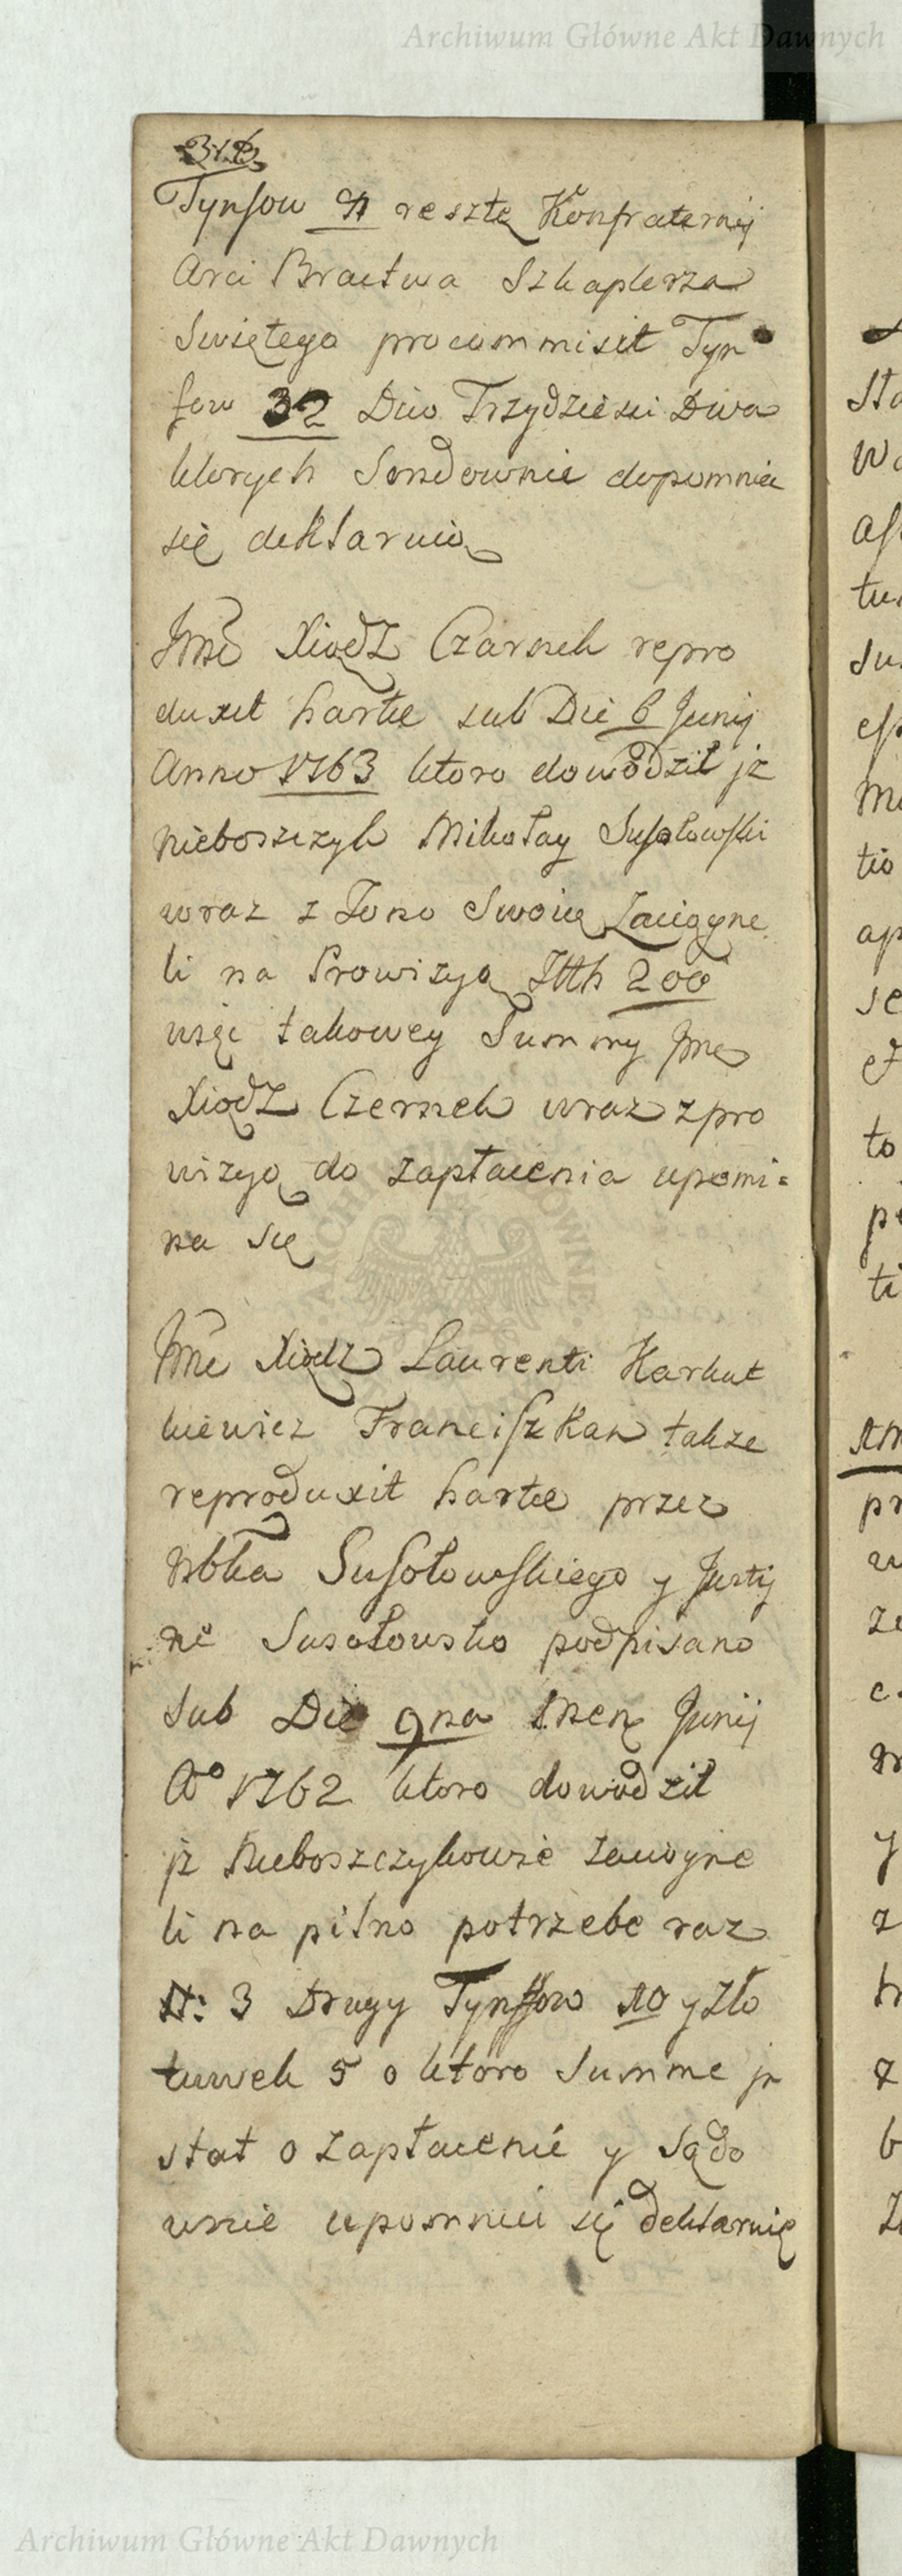 Archiwum Główne Akt Dawnych
Tynfow resztę Konfraternij
Arci Bractwa Szkaplerza
Swiętego procommisit Tyn
fow 32 Dico Trzydziesci Dwa
ktorych Sondownie dopomniec
się deklaruio
Jmc Xiądz Czarnek repro
duxit kartę sub Die 6 Junij
Anno 1763 ktoro dowodzil jz
nieboszczyk Mikołay Susołowski
wraz z Zono Swoią Zaciągne
li na Prowizyą Złłh 200
więc takowey Summy Jmc
Xiądz Czernek wraz z pro
wizyą do zapłacenia upomi=
na się
Jmc Xiądz Laurenti Karkut
kiewicz Franciszkan takze
reproduxit kartę przez
Nbka Susołowskiego y Justÿ
nę Susołowsko podpisano
Sub Die 9na Mens Junij
Ao 1762 ktoro dowodzil
jz Nieboszczykowie zaciogne
li na pilno potrzebe raz
3 Drugy Tynffow 10 y Zło
tuwek 5 o ktoro Summe jn
stat o zapłacenie y Sądo
wnie upomniec się deklaruię
Archiwum Główne Akt Dawnych